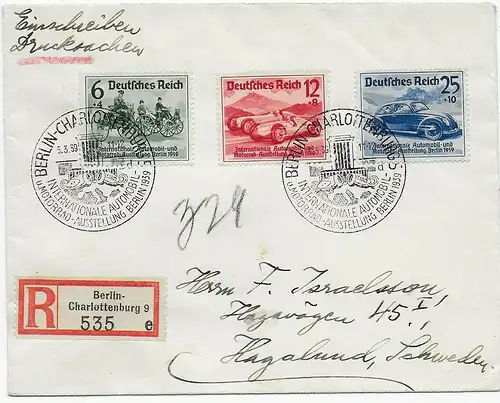 Einschreiben
Drucksachen
6
+4
Deutsches Reich
Internationale Automobil- und
Motorrad-Ausstellung Berlin 1939
Deutsches Reich
12
+8
Internationale Automobil- und
Motorrad-Ausstellung Berlin 1939
Deutsches Reich
25
+10
Internationale Automobil- und
Motorrad-Ausstellung Berlin 1939
BERLIN-CHARLOTTENBURG 9
5.3.39
d
INTERNATIONALE AUTOMOBIL-
U. MOTORRAD-AUSSTELLUNG BERLIN 1939
BERLIN-CHARLOTTENBURG 9
d
INTERNATIONALE AUTOMOBIL-
U. MOTORRAD-AUSSTELLUNG BERLIN 1939
R
Berlin-
Charlottenburg 9
535 e
Herrn F. Israelsson,
Hagavägen 45. I,
Hagalund, Schweden.